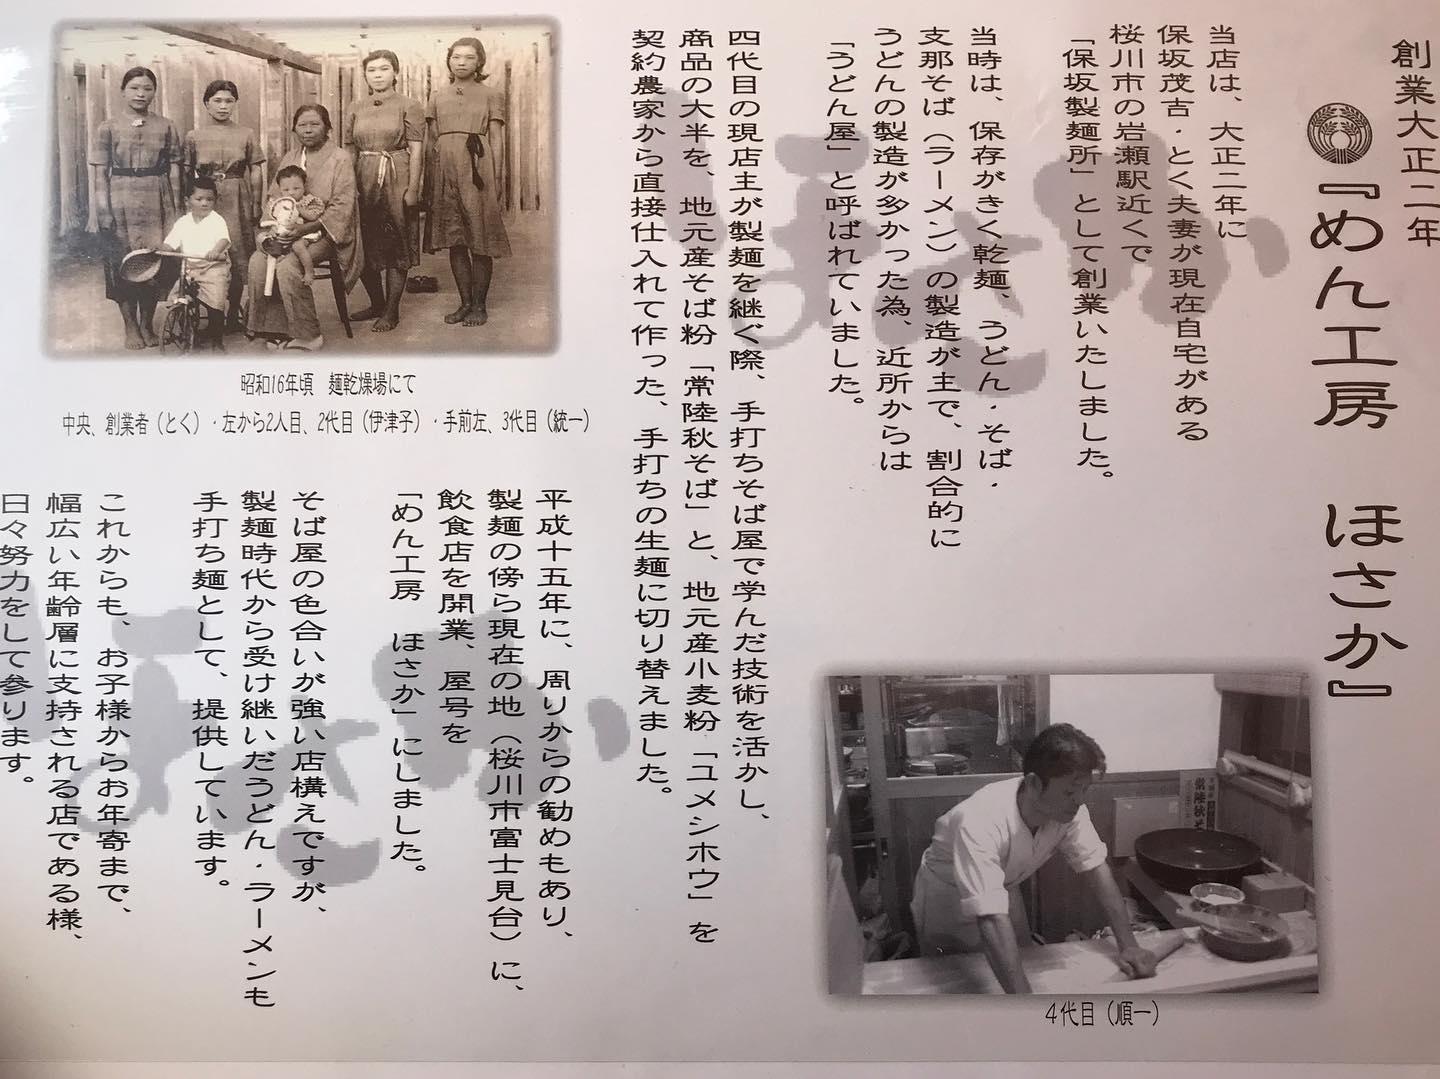 創業大正二年
『めん工房　ほさか』
当店は、大正二年に
保坂茂吉・とく夫妻が現在自宅がある
桜川市の岩瀬駅近くで
「保坂製麺所」として創業いたしました。
当時は、保存がきく乾麺、うどん・そば・
支那そば（ラーメン）の製造が主で、割合的に
うどんの製造が多かった為、近所からは
「うどん屋」と呼ばれていました。
四代目の現店主が製麺を継ぐ際、手打ちそば屋で学んだ技術を活かし、
商品の大半を、地元産そば粉「常陸秋そば」と、地元産小麦粉「ユメシホウ」を
契約農家から直接仕入れて作った、手打ちの生麺に切り替えました。
平成十五年に、周りからの勧めもあり、
製麺の傍ら現在の地（桜川市富士見台）に、
飲食店を開業、屋号を
「めん工房　ほさか」にしました。
そば屋の色合いが強い店構えですが、
製麺時代から受け継いだうどん・ラーメンも
手打ち麺として、提供しています。
これからも、お子様からお年寄まで、
幅広い年齢層に支持される店である様、
日々努力をして参ります。
昭和16年頃　麺乾燥場にて
中央、創業者（とく）・左から2人目、2代目（伊津子）・手前左、3代目（統一）
４代目（順一）
ほさか
ほさか
常陸秋そ